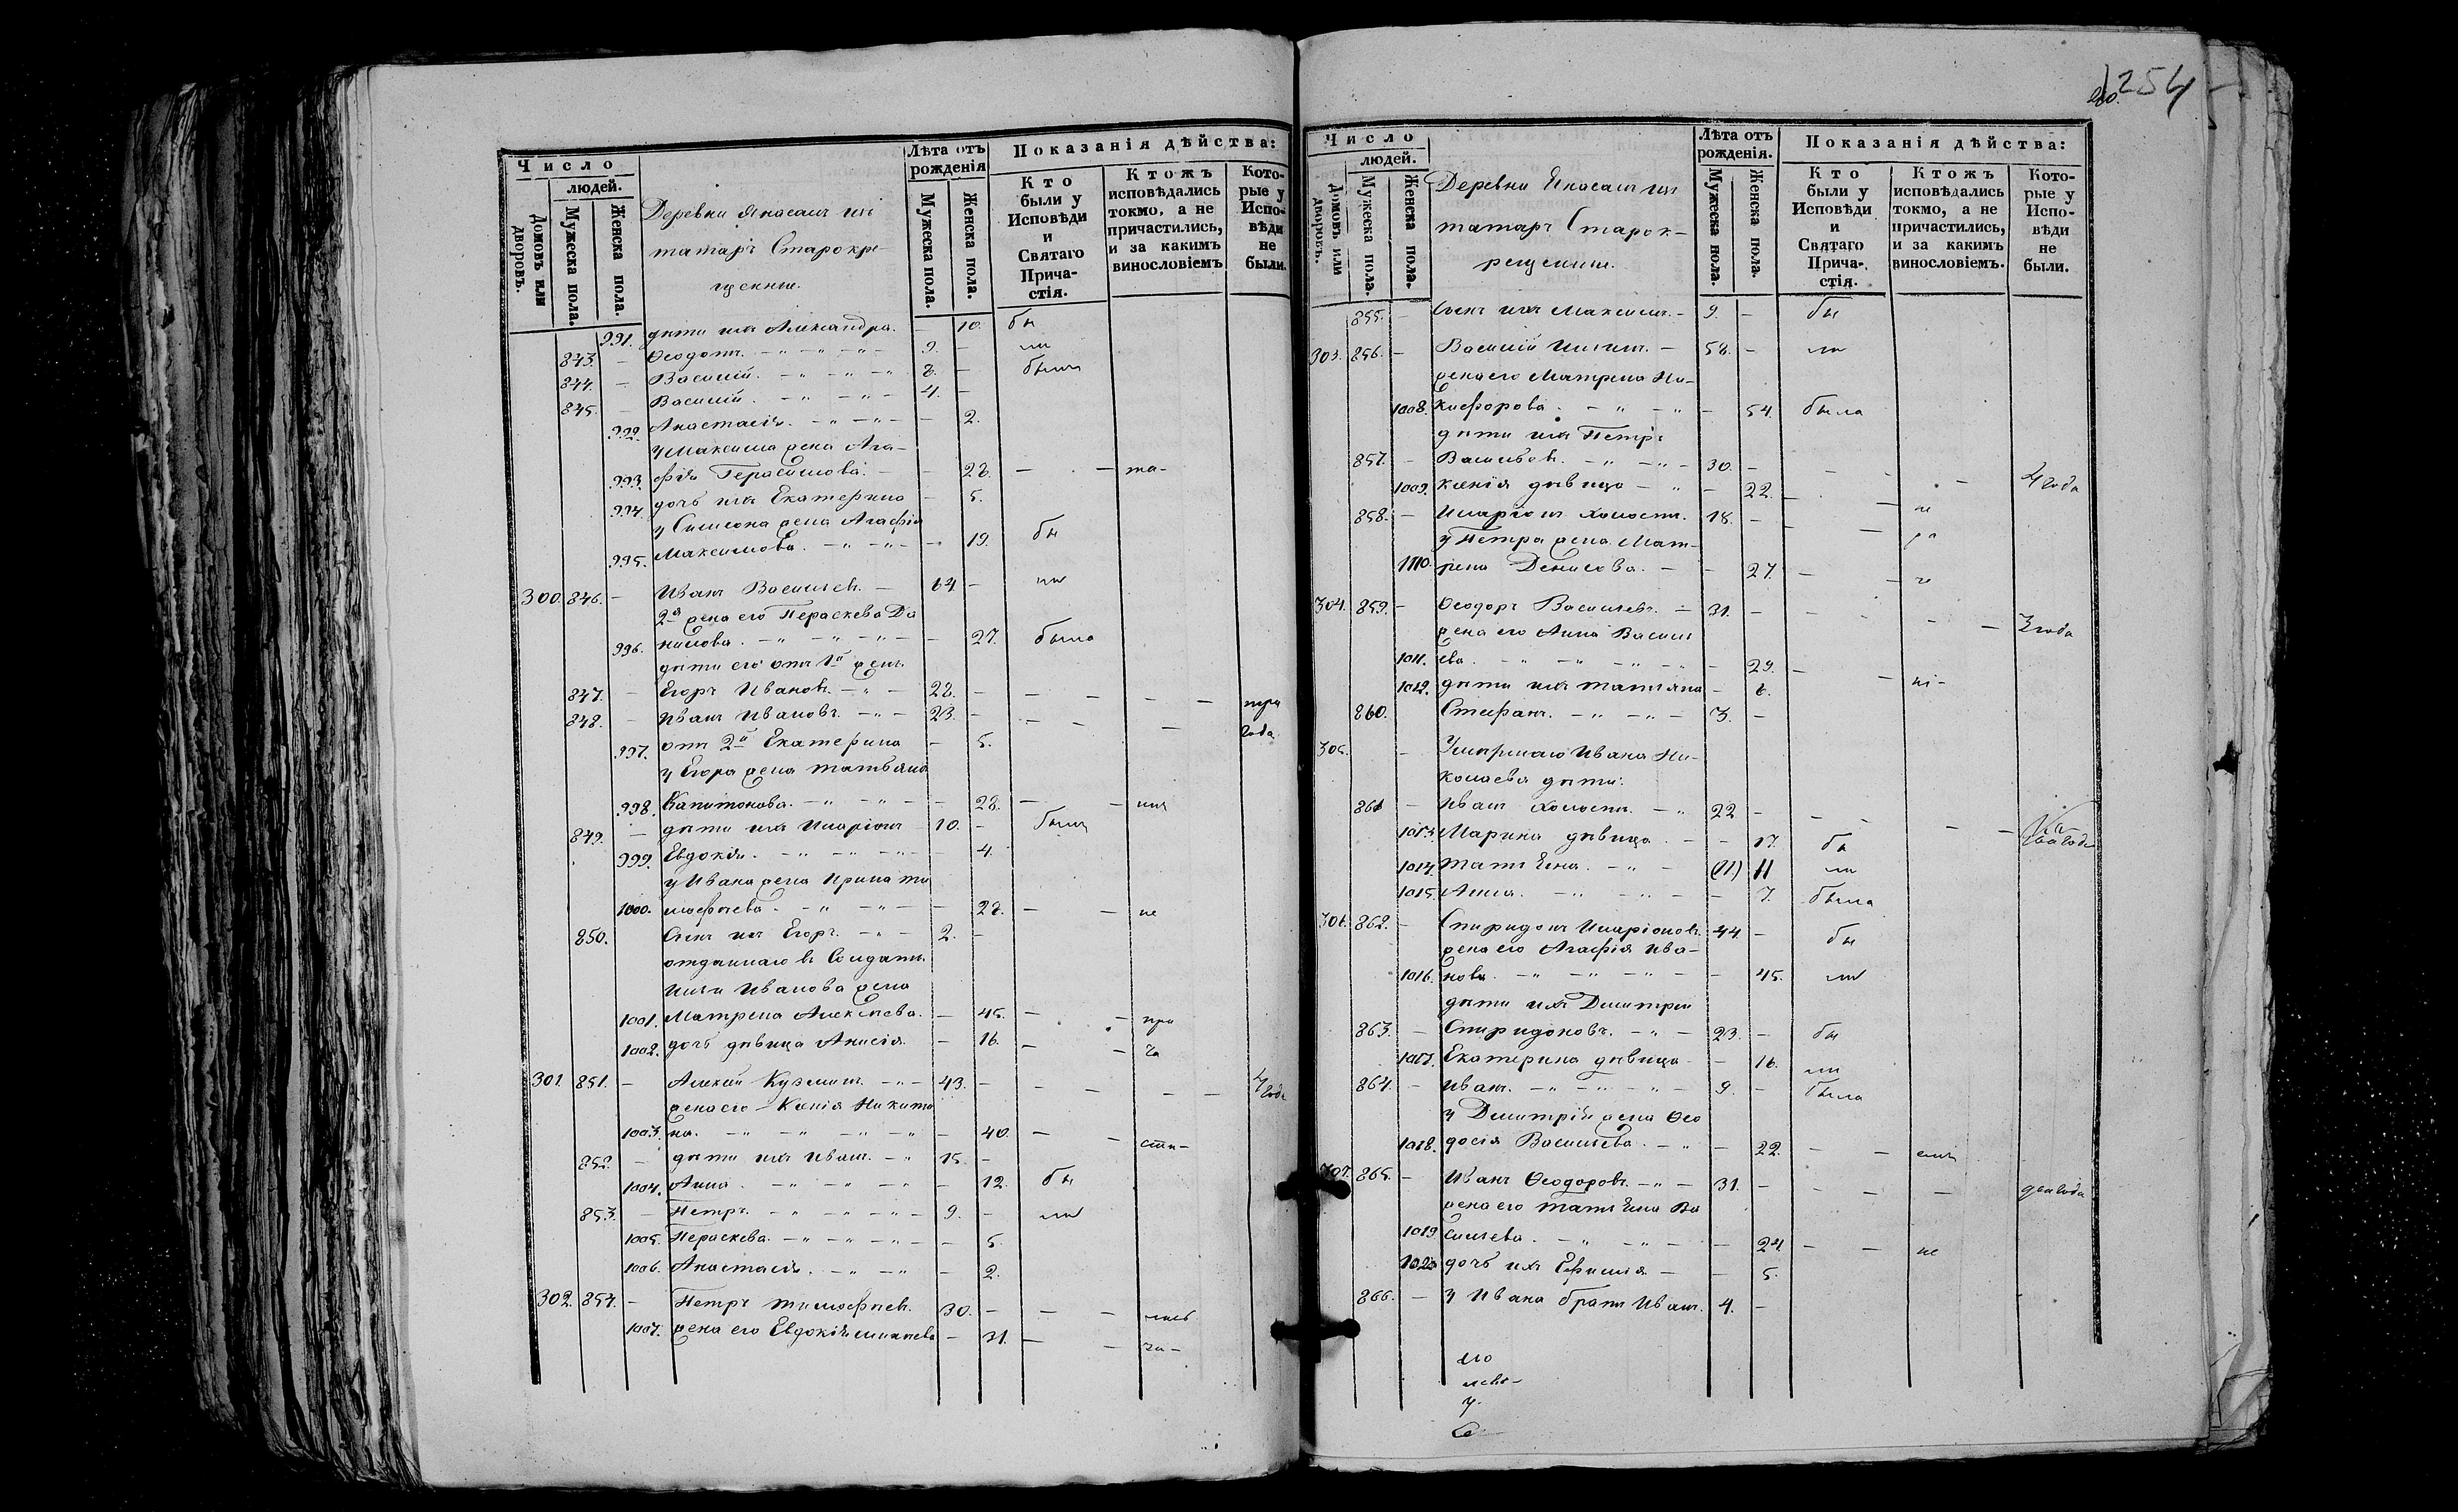 254
Число
людей.
Домовъ или дворовъ.
Мужеска пола.
Женска пола.
Деревни Янасалъ
татаръ Старокре-
щенные.
Лѣта отъ рожденія
Мужеска пола.
Женска пола.
Показанія дѣйства:
Кто были у Исповѣди и Святаго Прича-стія.
Ктожъ исповѣдались токмо, а не причастились, и за какимъ винословіемъ
Кото-рые у Испо-вѣди не были.
991. дѣти ихъ Александра. — 10. бы
843. — Ѳеодотъ. — 9. — ли
844. — Василій. — 8. — были
845. — Василій. — 4. —
992. Анастасія. — 2.
у Максима жена Ага-
993. фія Герасимова. — 28. — та-
994. дочь ихъ Екатерина — 5.
у Симеона жена Агафія
995. Максимова. — 19. бы
300. 846. — Иванъ Васильевъ. — 64 — ли
2я жена его Параскева Да
996. нилова. — 27. была
дѣти его отъ 1й жены
847. — Егоръ Ивановъ. — 28. — три
848. — Иванъ Ивановъ. — 23. — года
997. отъ 2й Екатерина — 5.
у Егора жена Татьяна
998. Капитонова. — 28. —
849. — дѣти ихъ Иларіонъ 10. — были
999. Евдокія. — 4.
у Ивана жена Ирина Ти
1000. мофѣева. — 28. — не
850. Сынъ ихъ Егоръ. — 2. —
отданнаго въ Солдаты
Ильи Иванова жена
1001. Матрена Алексѣева. — 45. — при
1002. дочь дѣвица Анисія — 16. — ча
301 851. — Алексѣй Кузминъ. — 43. — 4 года
жена его Ксенія Никити
1003. на. — 40. — сти-
852. — дѣти ихъ Иванъ. — 15. —
1004. Анна. — 12. бы
853. — Петръ. — 9. — ли
1005. Параскева. — 5.
1006. Анастасія. — 2.
302. 854. — Петръ Тимофѣевъ. 30. — лись
1007. жена его Евдокія — 31. — ча-
Число
людей.
Домовъ или дворовъ.
Мужеска пола.
Женска пола.
Деревни
татаръ Старок-
рещенные.
Лѣта отъ рожденія.
Мужеска пола.
Женска пола.
Показанія дѣйства:
Кто были у Исповѣди и Святаго Прича-стія.
Ктожъ исповѣдались токмо, а не причастились, и за какимъ винословіемъ.
Кото-рые у Испо-вѣди не были.
855. — Сынъ ихъ Максимъ. — 9. — бы
303. 856. — Василій — 58. — ли
жена его Матрена Ни-
1008. кифорова. — 54. была
дѣти ихъ Петръ
857. — Васильевъ. — 30. — 4 года
1009. Ксенія дѣвица — 22. — не
858. — Иларіонъ холостъ. 18. — ра
у Петра жена Мат-
1010. рена Денисова. — 27. —
304. 859. — Ѳеодоръ Васильевъ. — 31. — 3 года
жена его Анна Василь
1011. ева. — 29. —
1012. дѣти ихъ Татіяна — 6.
860. Стефанъ. — 3. —
305. — Умершаго Ивана Ни-
колаева дѣти:
861 — Иванъ холостъ. — 22 — два года
1013. Марина дѣвица. — 17. бы
1014. Татіяна. — (11) 11 ли
1015. Анна. — 7. была
306. 862. — Спиридонъ Иларіоновъ. 44. — бы
жена его Агафія Ива-
1016. нова. — 45. ли
дѣти ихъ Димитрій
863. — Спиридоновъ. — 23. — бы
1017. Екатерина дѣвица — 16. ли
864. — Иванъ. — 9. — была
у Димитрія жена Ѳео
1018. досія Васильева. — 22. —
307. 865. — Иванъ Ѳеодоровъ. — 31. — два года
жена его Татіяна Ва
1019. сильева. — 24 — не
1020 дочь ихъ Ефимія — 5.
866. — у Ивана братъ Иванъ. 4. —